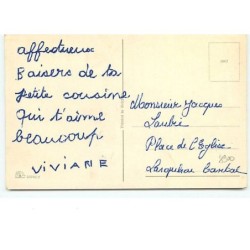 affectueux
Baisers de ta
petite cousine
Qui t'aime
beaucoup
VIVIANE
Monsieur Jacques
Place de l'Eglise
Cantal